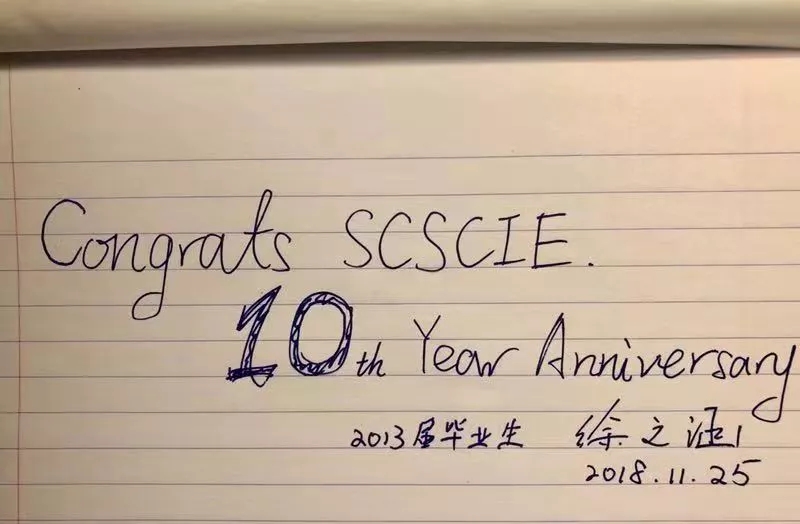 Congrats SCSCIE.
10th Year Anniversary
2013届毕业生 徐之
2018.11.25